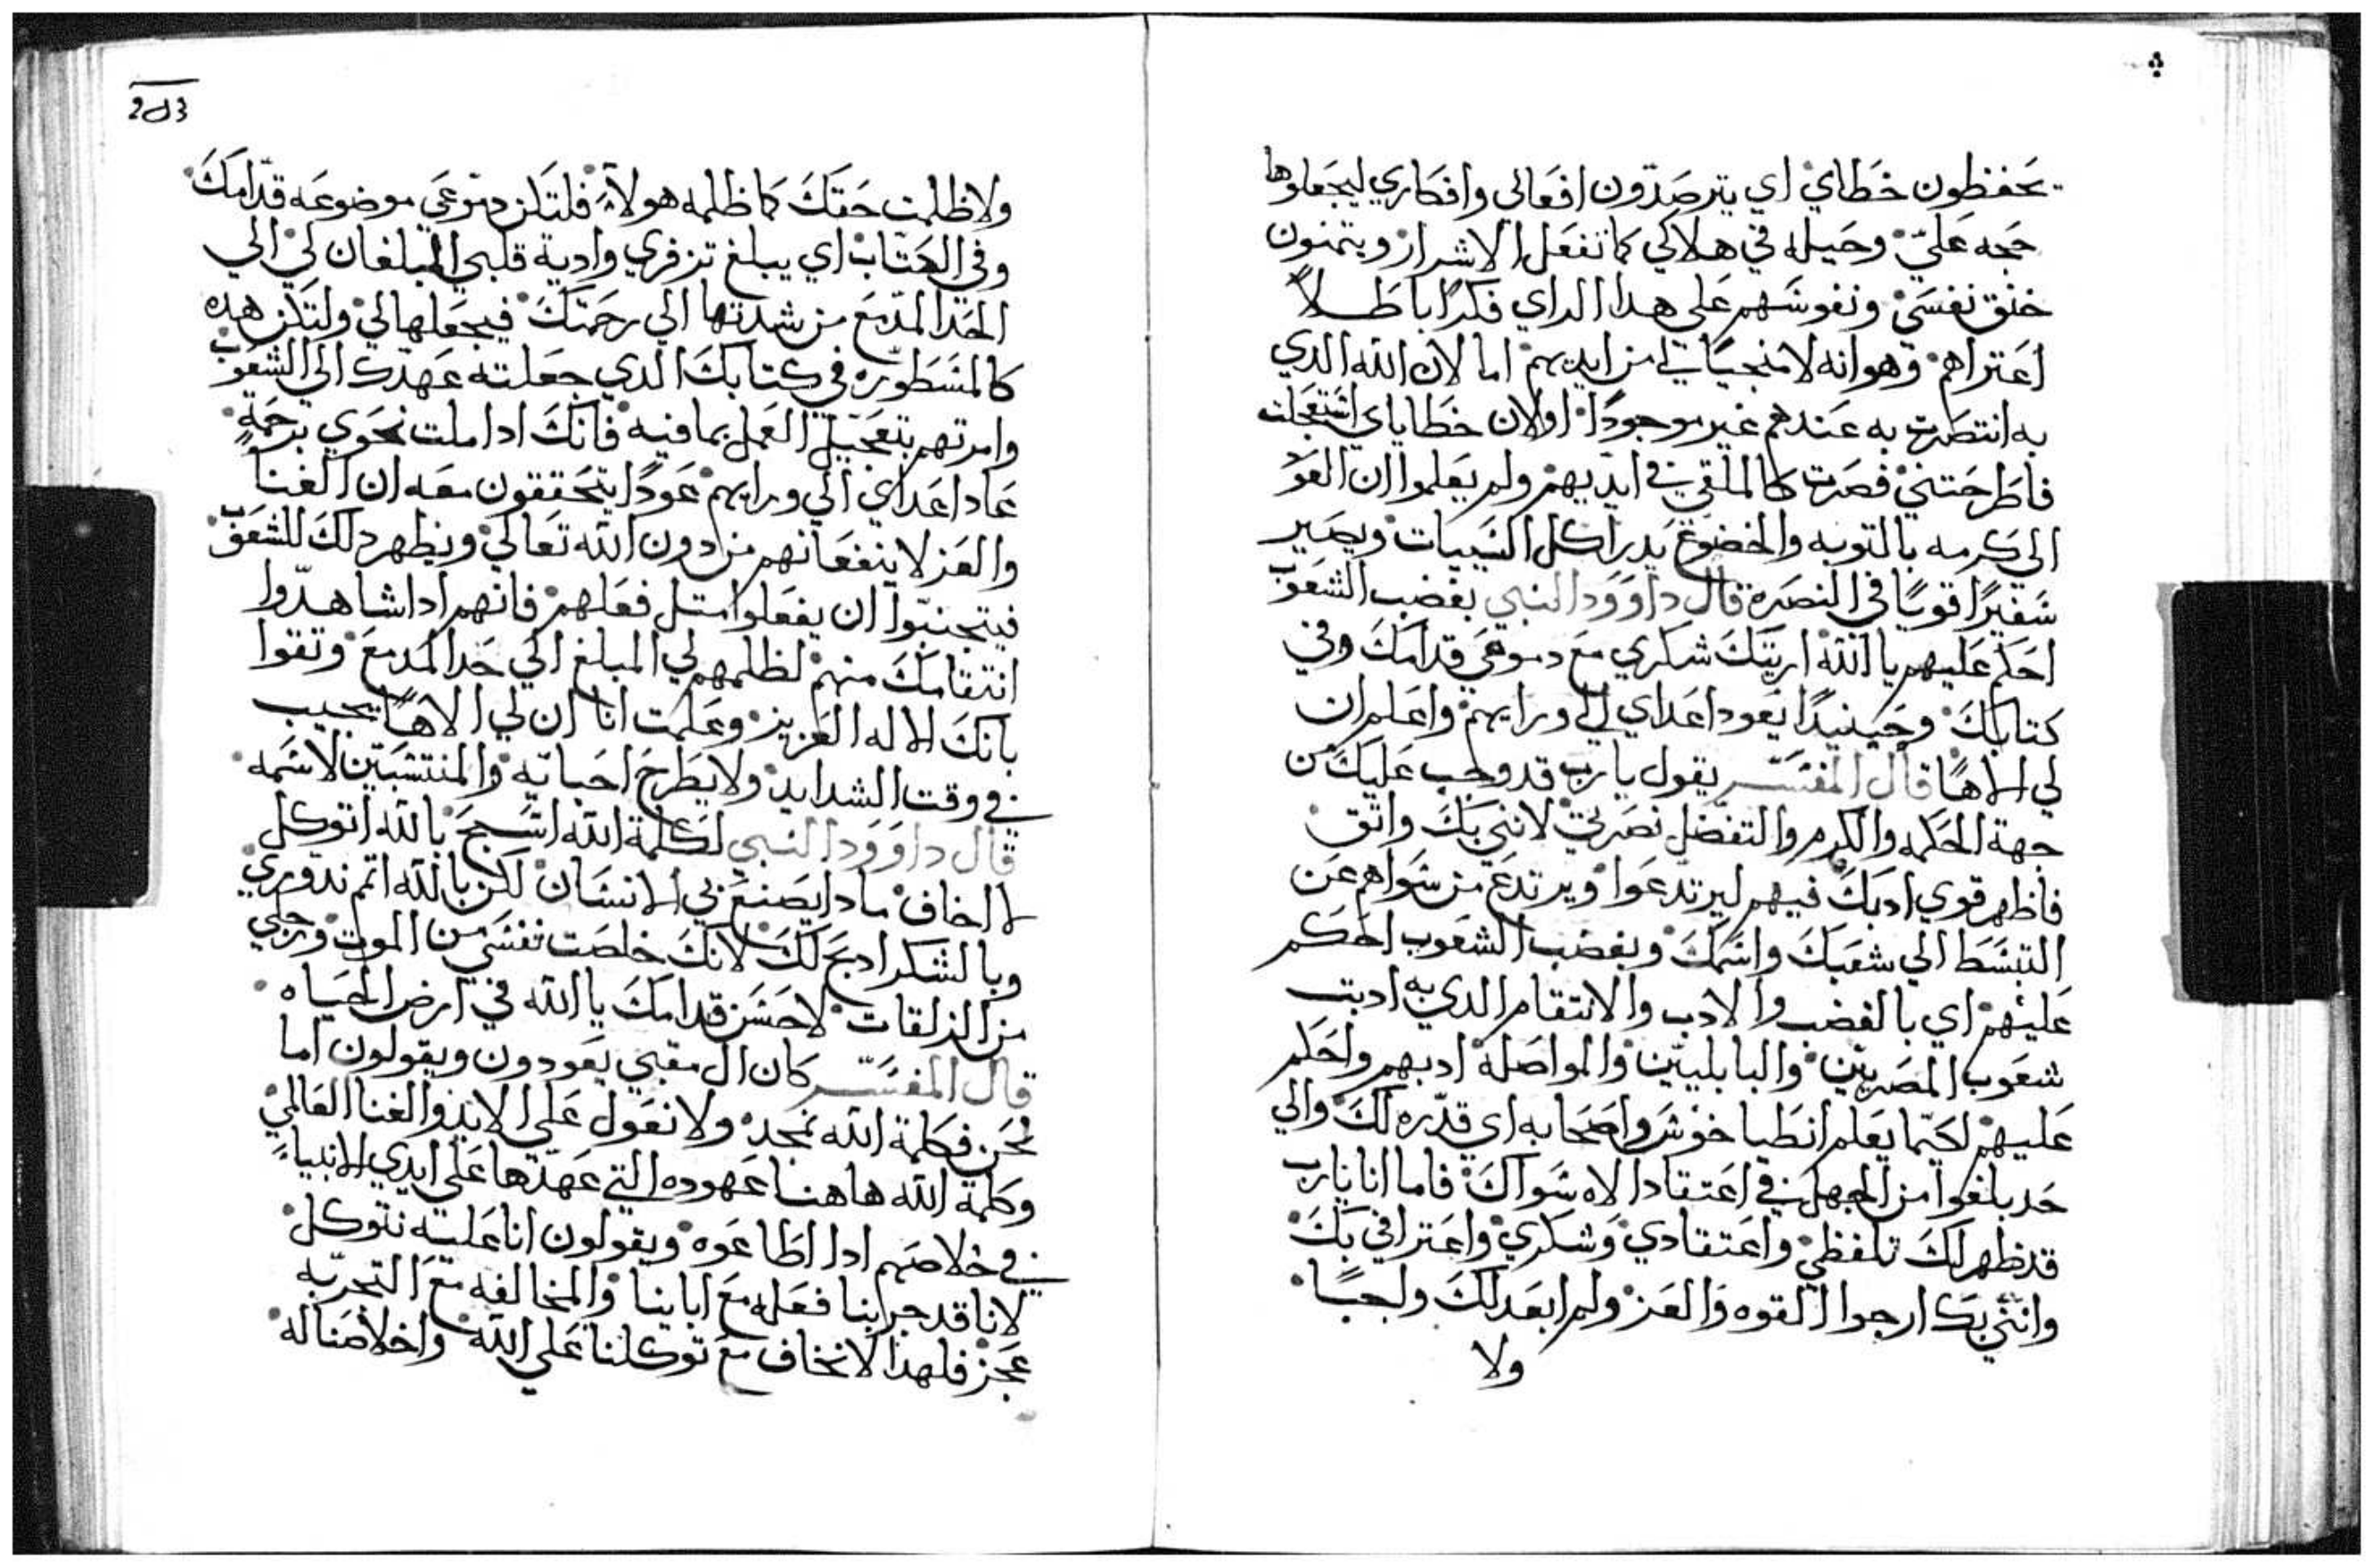 يحفظون خطاي اي يترصدون افعالي وافكاري ليجعلوها
حجه علي وحيله في هلاكي كما تفعل الاشرار ويتمنون
خنق نفسي ونفوسهم علي هدا الراي فكرا باطلا
اعتراهم وهو انه لا منجيا لي من ايديهم اما لان الله الدي
به انتصرت به عندهم غير موجودا او لان خطاياي
فاطرحتني فصرت كالملقي في ايديهم ولم يعلموا ان العود
الي كرمه بالتوبه والخضوع يدرا كل السييات ويصير
سفيرا قويا في النصره قال داوود النبي بغضب الشعوب
احكم عليهم يا الله اريتك شكري مع دموعي قدامك وفي
كتابك وحينيدا يعود اعداي الي ورايهم واعلم ان
لي الاها قال المفسر يقول يا رب قد وجب عليك من
جهة الحكمه والكرم والتفضل نصرتي لانني بك واثق
فاظهر قوي ادبك فيهم ليرتدعوا ويرتدع من سواهم عن
التبسط الي شعبك واسمك وبغضب الشعوب احكم
عليهم اي بالغضب والادب والانتقام الدي به ادبت
شعوب المصريين والبابليين والمواصلة ادبهم واحكم
عليهم لكيما يعلم انطياخوس واصحابه اي قدره لك والي
حد بلغوا من الجهل في اعتقاد الاه سواك فاما انا يارب
قد ظهر لك تلفظي واعتقادي وشكري واعترافي بك
وانني بك ارجوا القوه والعز ولم ابعد لك واجبا
ولا
203
ولا ظلمت حقك كما ظلمه هولاء فلتكن دموعي موضوعه قدامك
وفي الكتاب اي يبلغ تزفري وادية قلبي المبلغان لي الي
الحد المدمع من شدتها الي رحمتك فيجعلها لي ولتكن هده
كالمسطوره في كتابك الدي جعلته عهدك الي الشعوب
وامرتهم بتعجيل العمل بما فيه فانك ادا ملت نحوي برحمة
عاد اعداي الي ورايهم عودا يتحققون معه ان الغنا
والعز لا ينفعانهم من دون الله تعالي ويظهر دلك للشعوب
فيتجنبوا ان يفعلوا متل فعلهم فانهم ادا شاهدوا
انتقامك منهم لظلمهم لي المبلغ الي حد المدمع وتقوا
بانك الاله العزيز وعلمت انا ان لي الاها يجيب
في وقت الشدايد ولا يطرح احباته والمنتسبين لاسمه
قال داوود النبي لكلمة الله اسبح بالله اتوكل
لا اخاف مادا يصنع بي الانسان لكن بالله اتم ندوري
وبالشكر ادبح لك لانك خلصت نفسي من الموت ورجلي
من الزلقات لاحسن قدامك يا الله في ارض الحياه
قال المفسر كان ال مقبي يعودون ويقولون اما
نحن فكلمة الله نمجد ولا نعول علي الايد والغنا العالمي
وكلمة الله هاهنا عهوده التي عهدها علي ايدي الانبياء
في خلاصهم ادا اطاعوه ويقولون انا عليه نتوكل
لانا قد جربنا فعله مع اباينا والمخالفه مع التجربه
عجز فلهدا لا نخاف مع توكلنا علي الله واخلاصنا له